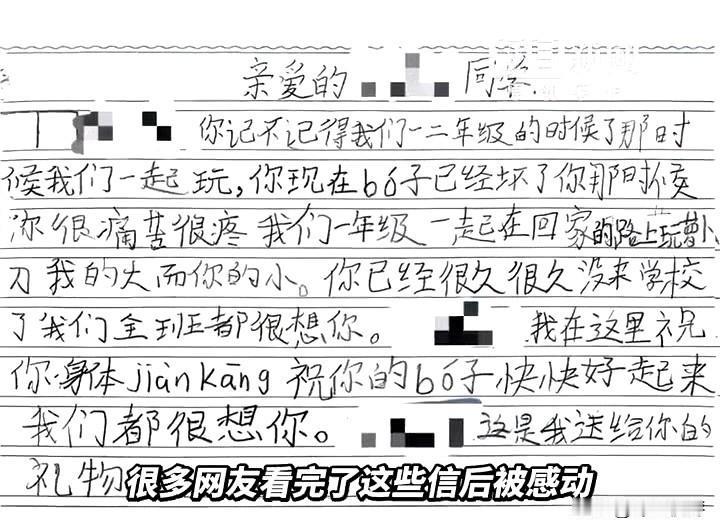 亲爱的 同学
你记不记得我们一二年级的时候了那时
候我们一起玩,你现在bó子已经坏了你那时候
你很痛苦很疼 我们一年级 一起在回家的路上玩萝卜
刀我的大而你的小。你已经很久很久没来学校
了我们全班都很想你。 我在这里祝
你身体jiànkāng 祝你的bó子快快好起来
我们都很想你。 这是我送给你的
礼物
很多网友看完了这些信后被感动